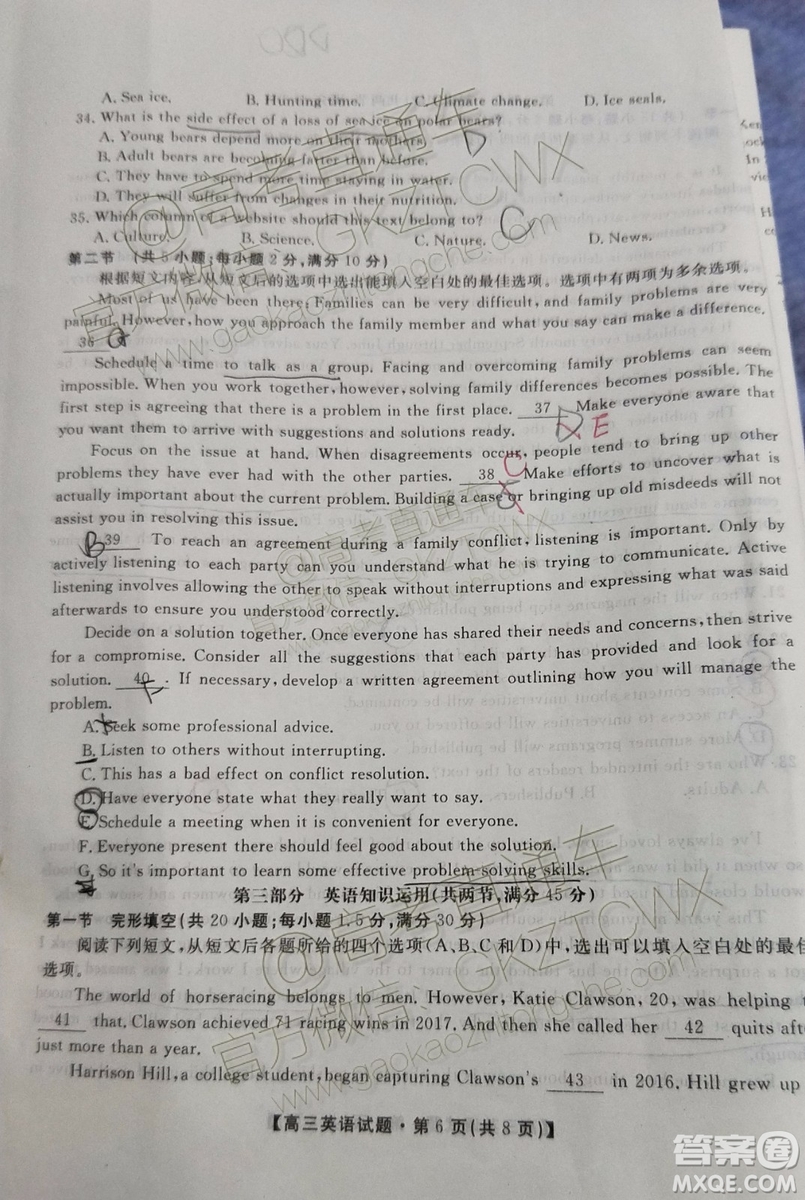 A. Sea ice. B. Hunting time. C. Climate change. D. Ice seals.
34. What is the side effect of a loss of sea ice on polar bears? D
A. Young bears depend more on their mothers.
B. Adult bears are becoming fatter than before.
C. They have to spend more time staying in water.
D. They will suffer from changes in their nutrition.
35. Which column of a website should this text belong to? C
A. Culture. B. Science. C. Nature. D. News.
第二节 (共5小题;每小题2分,满分10分)
根据短文内容,从短文后的选项中选出能填入空白处的最佳选项。选项中有两项为多余选项。
Most of us have been there: Families can be very difficult, and family problems are very
painful. However, how you approach the family member and what you say can make a difference.
36 G
Schedule a time to talk as a group. Facing and overcoming family problems can seem
impossible. When you work together, however, solving family differences becomes possible. The
first step is agreeing that there is a problem in the first place. 37 D Make everyone aware that
you want them to arrive with suggestions and solutions ready. E
Focus on the issue at hand. When disagreements occur, people tend to bring up other
problems they have ever had with the other parties. 38 C Make efforts to uncover what is
actually important about the current problem. Building a case or bringing up old misdeeds will not
assist you in resolving this issue.
B 39 To reach an agreement during a family conflict, listening is important. Only by
actively listening to each party can you understand what he is trying to communicate. Active
listening involves allowing the other to speak without interruptions and expressing what was said
afterwards to ensure you understood correctly.
Decide on a solution together. Once everyone has shared their needs and concerns, then strive
for a compromise. Consider all the suggestions that each party has provided and look for a
solution. 40 F . If necessary, develop a written agreement outlining how you will manage the
problem.
A. Seek some professional advice.
B. Listen to others without interrupting.
C. This has a bad effect on conflict resolution.
D. Have everyone state what they really want to say.
E. Schedule a meeting when it is convenient for everyone.
F. Everyone present there should feel good about the solution.
G. So it's important to learn some effective problem-solving skills.
第三部分 英语知识运用(共两节,满分45分)
第一节 完形填空(共20小题;每小题1.5分,满分30分)
阅读下列短文,从短文后各题所给的四个选项(A、B、C和D)中,选出可以填入空白处的最佳
选项。
The world of horseracing belongs to men. However, Katie Clawson, 20, was helping
41 that. Clawson achieved 71 racing wins in 2017. And then she called her 42 quits after
just more than a year.
Harrison Hill, a college student, began capturing Clawson's 43 in 2016. Hill grew up
【高三英语试题·第6页(共8页)】
@高考直通车
官方微信:GKZTCWX
www.gaokaozhitongche.com
答案圈
MXQE.COM